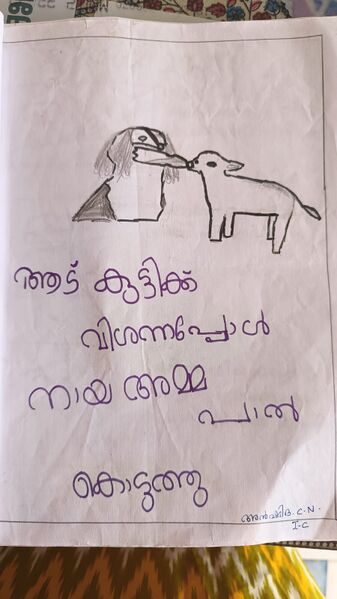 ആട് കുട്ടിക്ക്
വിശന്നപ്പോൾ
നായ അമ്മ
പാൽ
കൊടുത്തു
C.N.
I-C